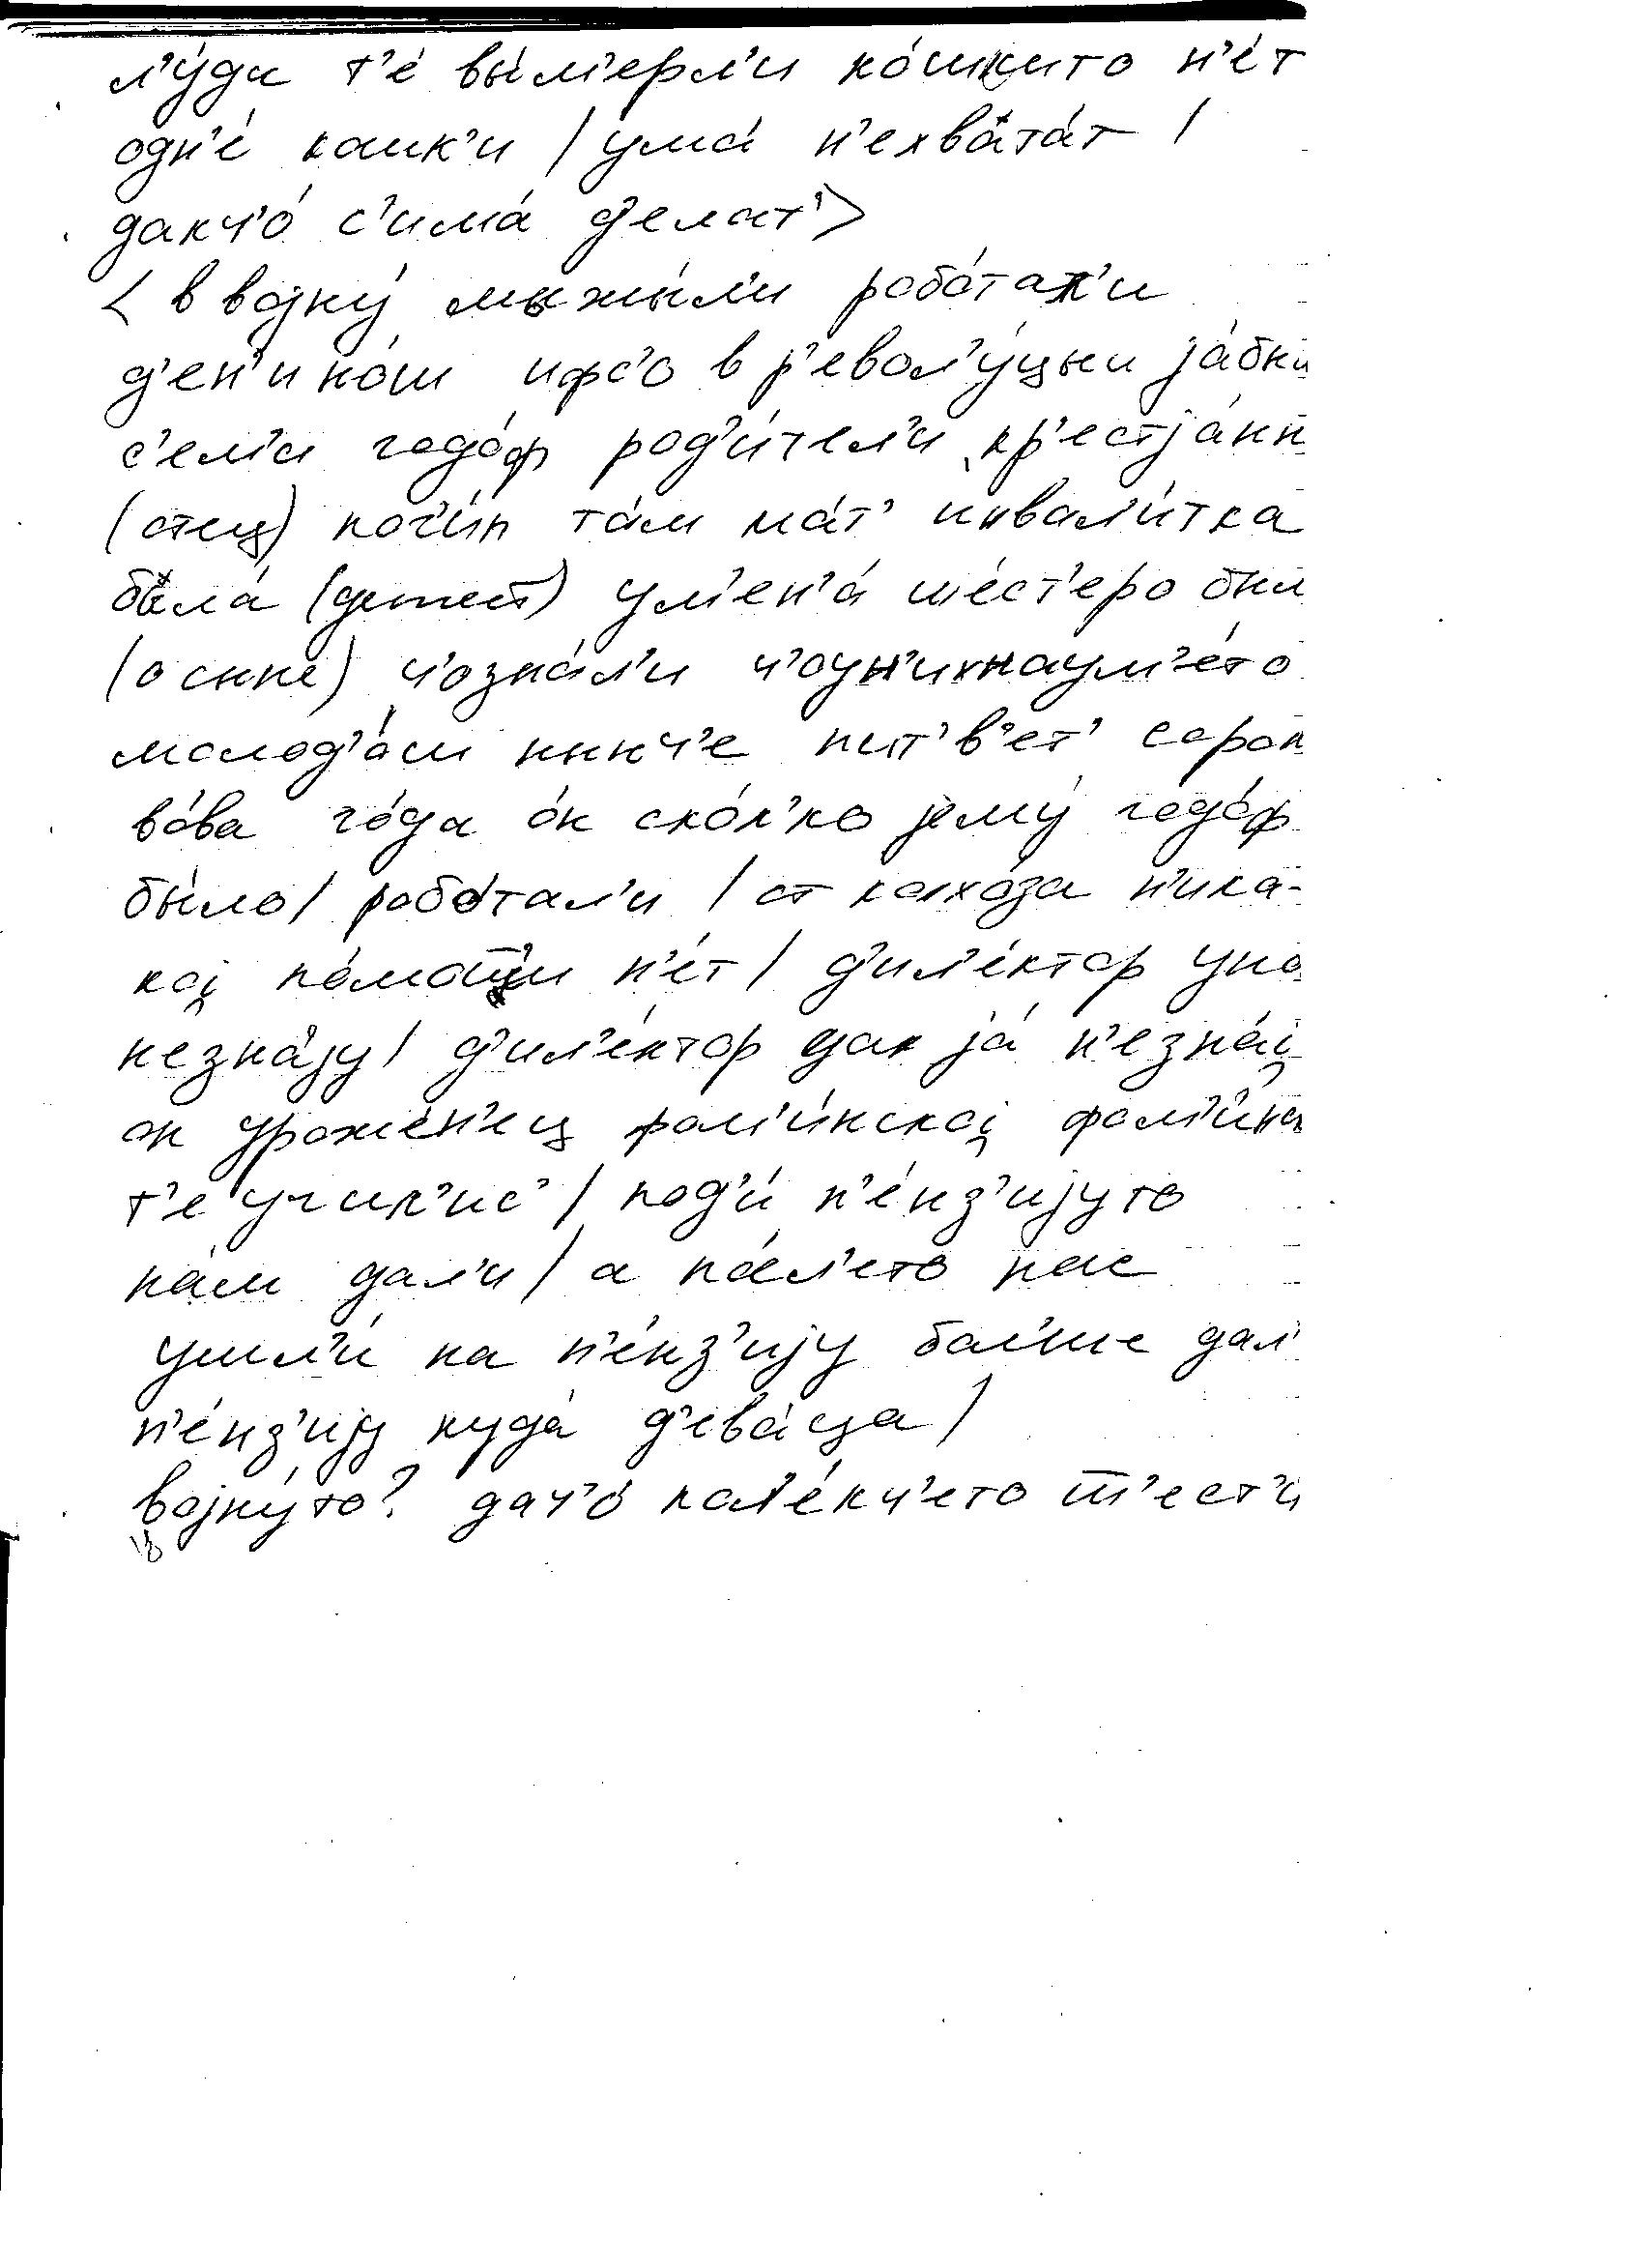 л'у́ди т'е́ вы́м'ерл'и ко́шкито н'е́т
одн'е́ кошк'и / ума́ н'ехвата́т /
дакч'о́ с'има́ д'елат'>
< в војну́ мы жы́л'и робо́тал'и
д'ен'и но́ш ифс'о в р'евол'у́цыи ја́ бы
с'ем'и годо́ф род'и́тел'и кр'естја́ны
(отец) поги́п та́м ма́т' инвал'и́тка
была́ (детей) ум'ен'а́ ше́ст'еро был
(о сыне) ч'озна́л'и ч'оун'их наум'е́то
молод'о́ш нынч'е п'ет'в'ет' сорок
во́ва го́да о́н ско́л'ко јему́ годо́ф
бы́ло / робо́тал'и / от колхо́за н'ика-
кој по́мошши н'е́т / д'ил'е́ктор уно
незна́ју / д'ил'е́ктор дак ја́ н'езна́ј
он уроже́н'ец фом'и́нској фом'и́нс
т'е учил'ис' / под'и́ п'е́нз'ијуто
на́м дал'и / а по́сл'ето нас
ушл'и́ на п'е́нз'ију бол'ше дал'
п'е́нз'ију куда́ д'ева́ца /
војну́то? дач'о́ кол'е́кч'ето ш'ест'и